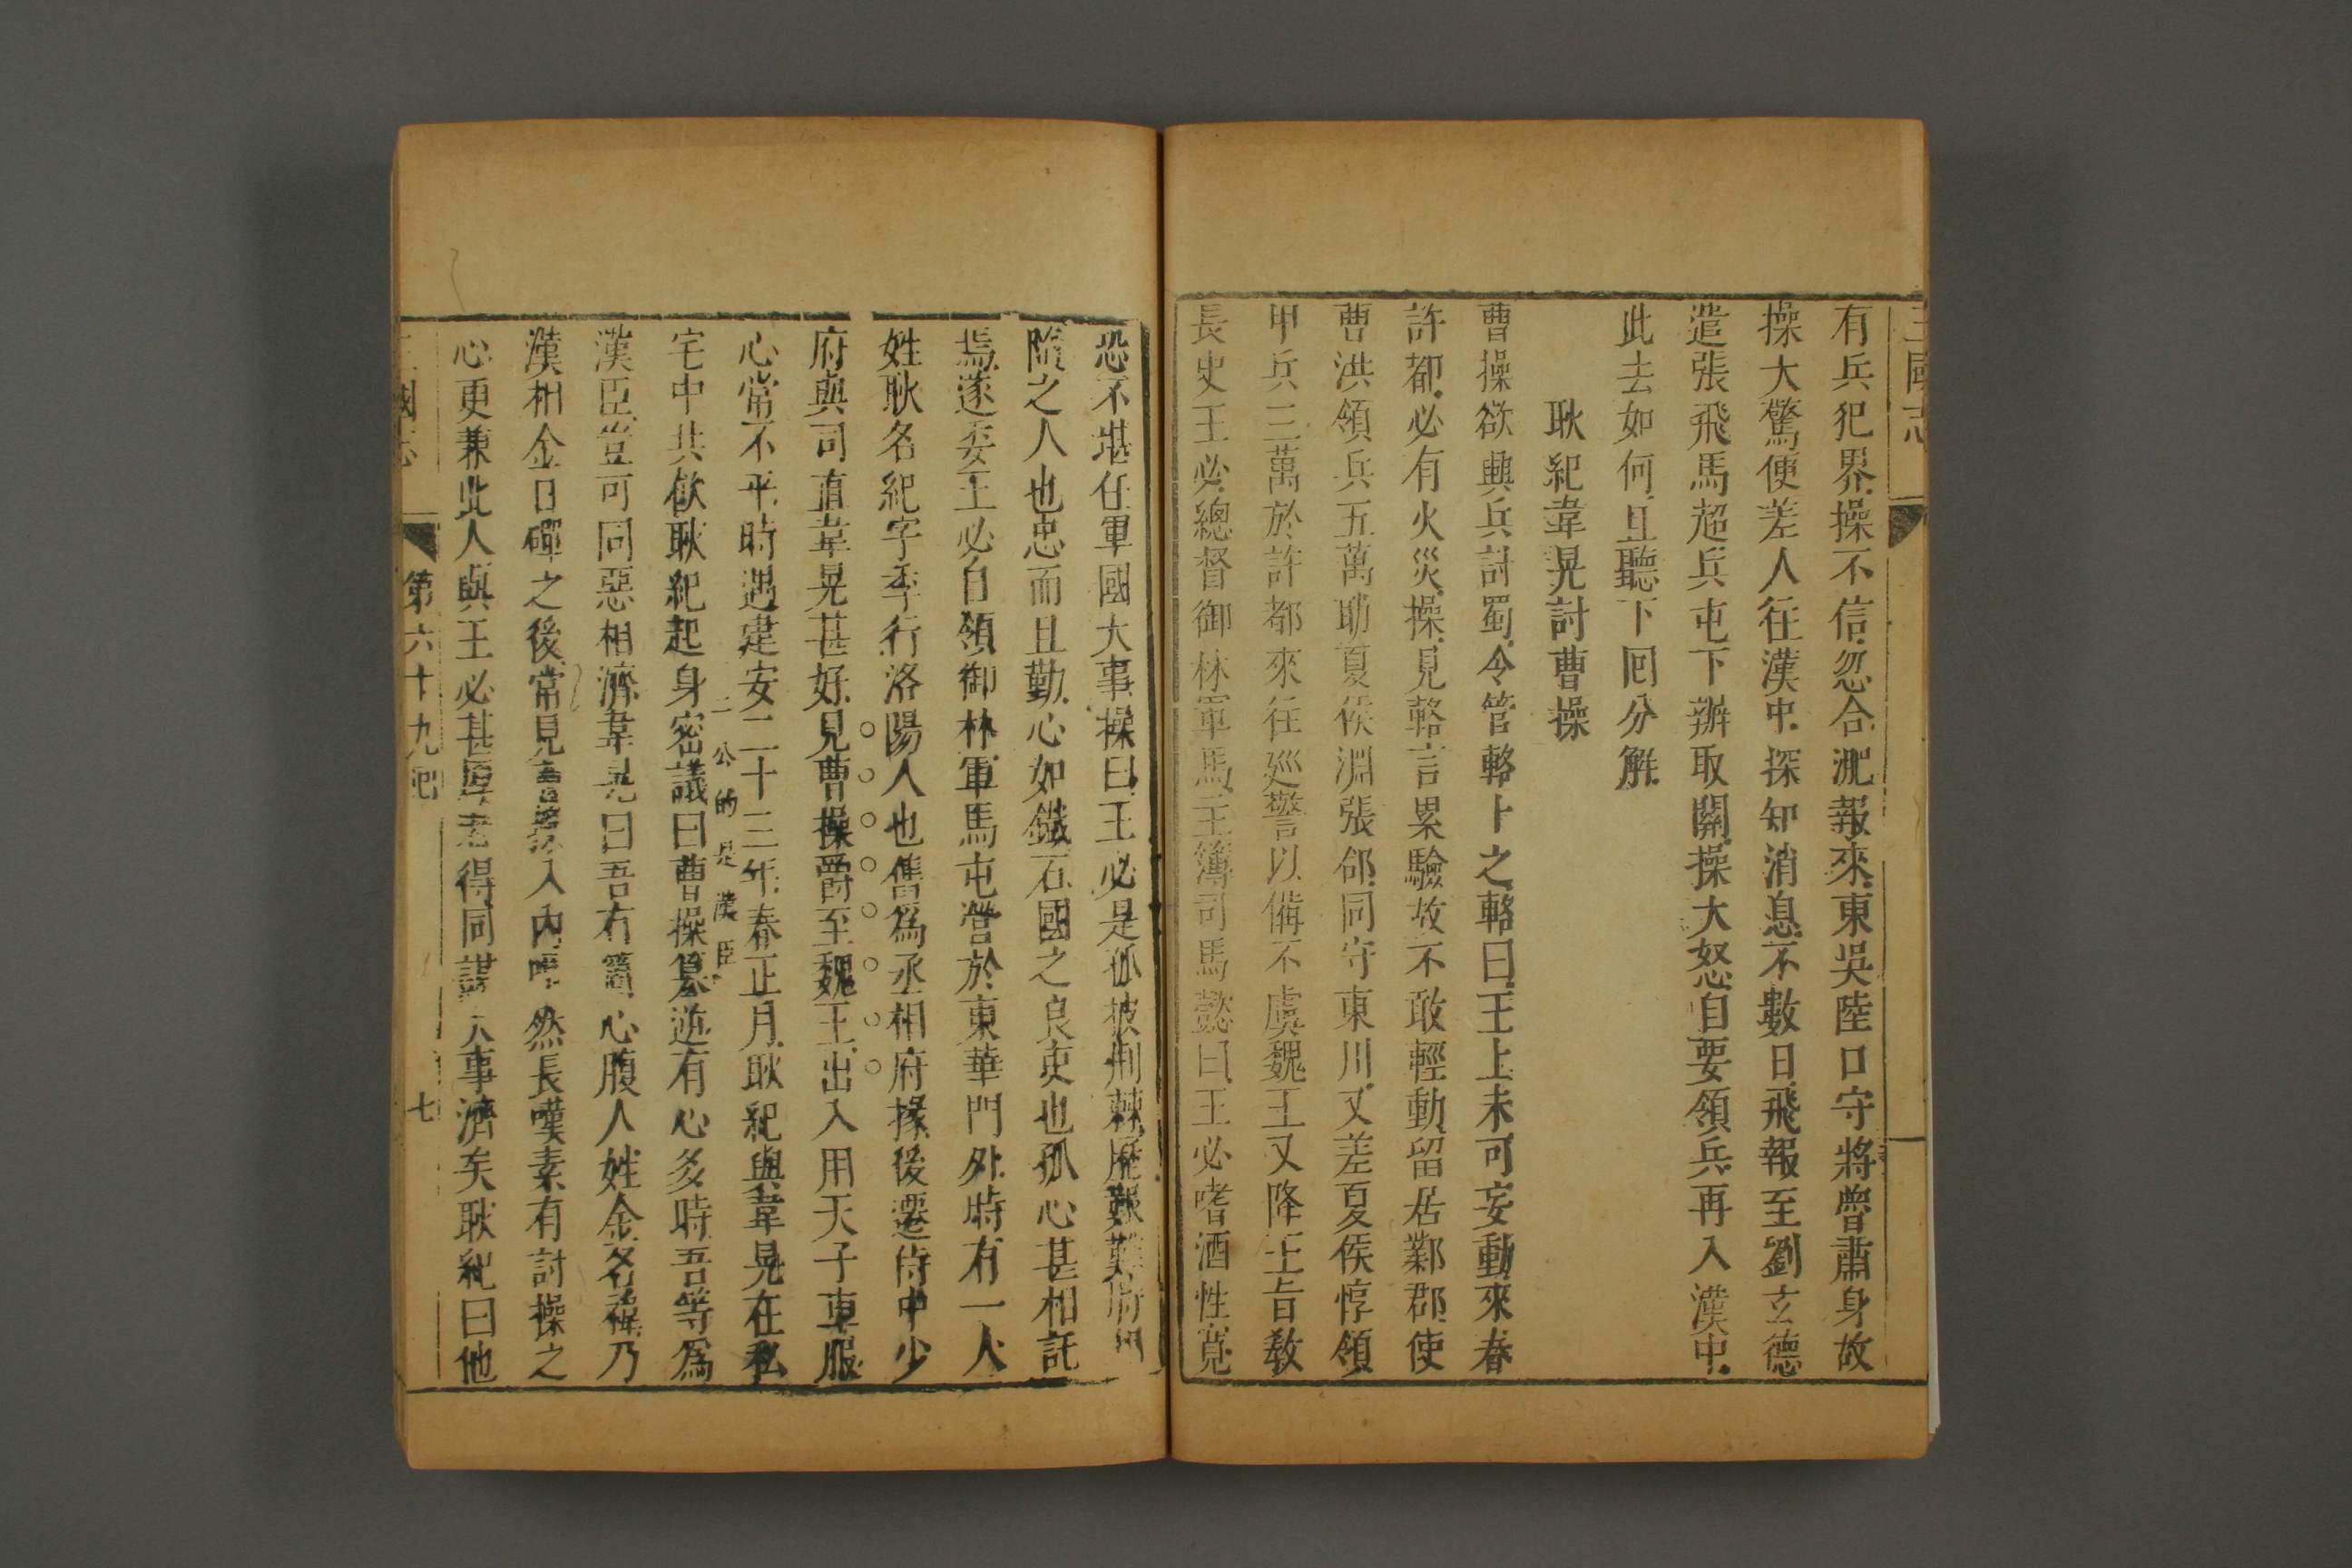 三國志
有兵犯界操不信忽合淝報來東吳陸口守將魯肅身故
操大驚便差人往漢中探知消息不數日飛報至劉玄德
遣張飛馬超兵屯下辦取關操大怒自要領兵再入漢中
此去如何且聽下囘分解
耿紀韋晃討曹操
曹操欲興兵討蜀令管輅卜之輅曰王上未可妄動來春
許都必有火災操見輅言累驗故不敢輕動留居鄴郡使
曹洪領兵五萬助夏侯淵張郃同守東川又差夏侯惇領
甲兵三萬於許都來往廵警以備不虞魏王又降王旨教
長史王必總督御林軍馬主簿司馬懿曰王必嗜酒性寬
恐不堪任軍國大事操曰王必是孤披荆棘歷艱難時相
隨之人也忠而且勤心如鐵石國之良吏也孤心甚相託
焉遂委王必自領御林軍馬屯營於東華門外時有一人
姓耿名紀字季行洛陽人也舊爲丞相府掾後遷侍中少
府與司直韋晃甚好見曹操爵至魏王出入用天子車服
心常不平時遇建安二十三年春正月耿紀與韋晃在私
二公的是漢臣
宅中共飲耿紀起身密議曰曹操篡逆有心多時吾等爲
漢臣豈可同惡相濟韋晃曰吾有箇心腹人姓金名禕乃
漢相金日磾之後常見曹操入內喟然長嘆素有討操之
心更兼此人與王必甚厚若得同謀大事濟矣耿紀曰他
三國志
第六十九囘
七